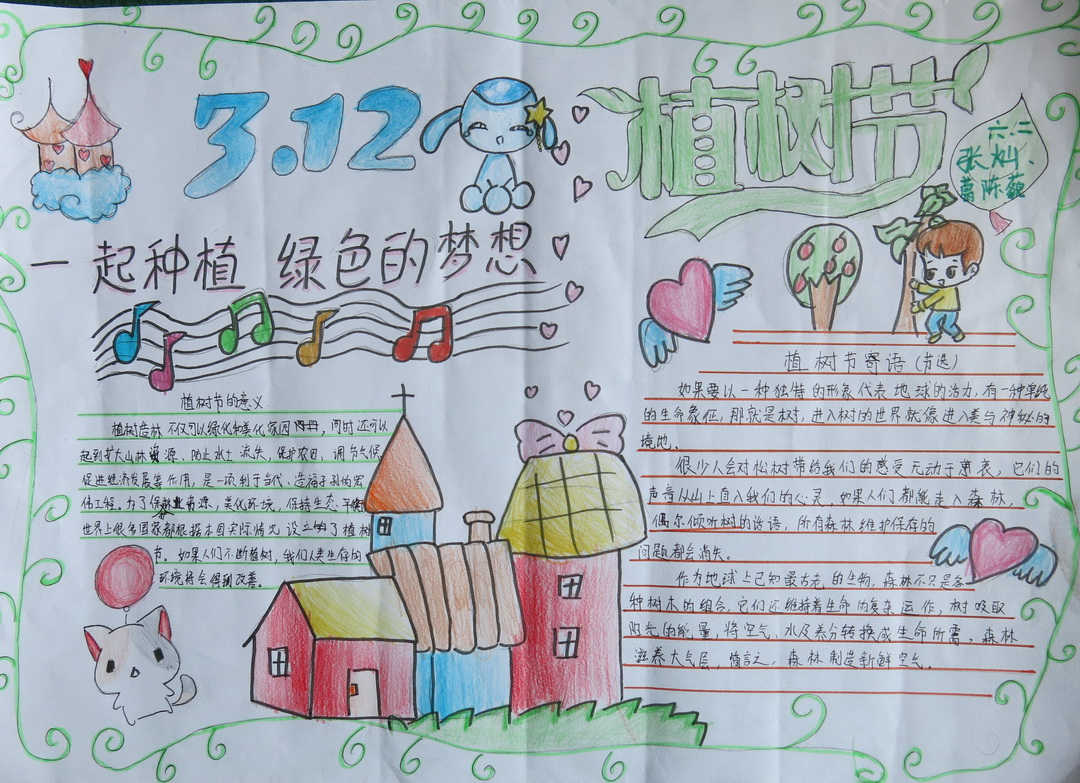 3.12
植树节
六.二
张灿、
葛陈薇
一起种植 绿色的梦想
植树节的意义
植树造林不仅可以绿化和美化家园,同时还可以
起到扩大山林资源、防止水土流失、保护农田、调节气候、
促进经济发展等作用,是一项利于当代、造福子孙的宏
伟工程。为了保护林业资源,美化环境,保持生态平衡
世界上很多国家都根据本国实际情况设立的了植树
节。如果人们不断植树,我们人类生存的
环境将会得到改善。
植树节寄语(节选)
如果要以一种独特的形象代表地球的活力,有一种单纯
的生命象征,那就是树,进入树的世界就像进入类与神秘的
境地。
很少人会对松树带给我们的感受无动于衷,它们的
声音从山上直入我们的心灵,如果人们都能走入森林,
偶尔倾听树的话语,所有森林维护保存的
问题都会消失。
作为地球上已知最古老的生物,森林不只是各
种树木的组合,它们还维持着生命的复杂运作,树吸取
阳光的能量,将空气、水及养分转换成生命所需,森林
滋养大气层,简言之,森林制造新鲜空气。